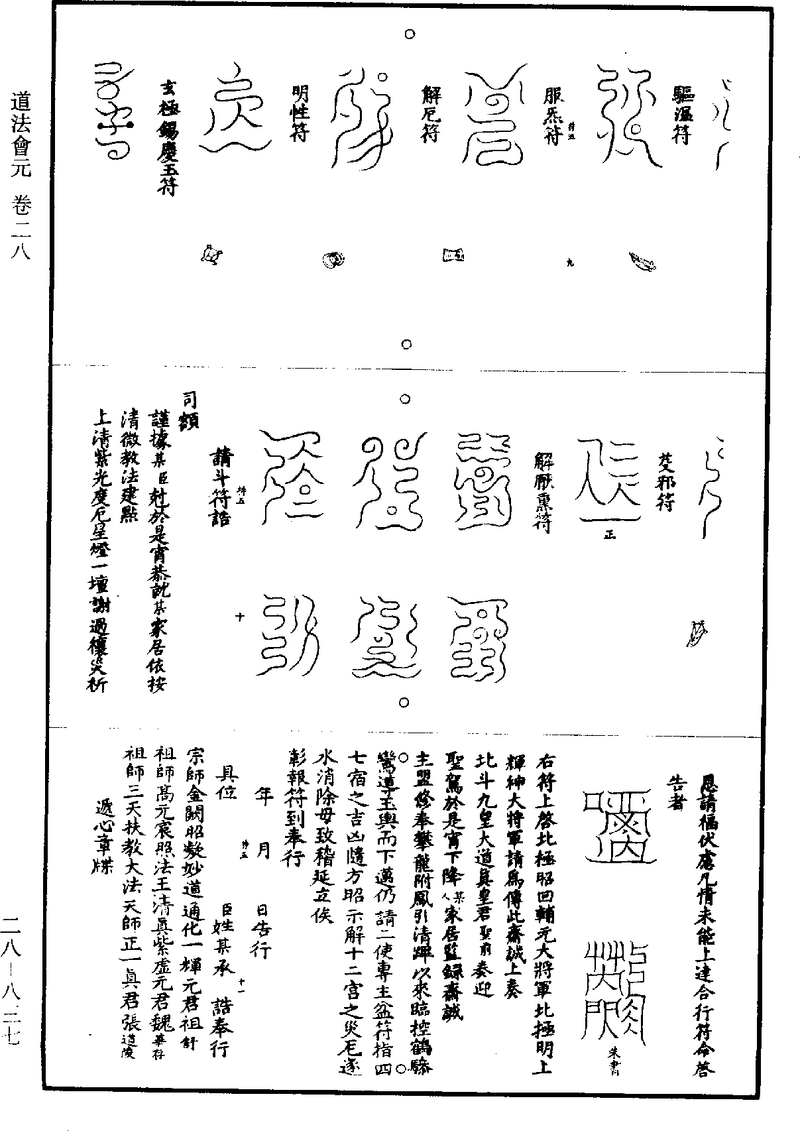 道法會元 卷二八
驅瘟符
服炁符
解厄符
明性符
玄極錫慶玉符
九
芟邪符
正
解厭熏符
請斗符誥
十
司額
謹據某臣尅於是宵恭就某家居依按
清微教法建點
上清紫光度厄星燈一壇謝過禳災祈
恩請福伏慮凡情未能上達合行符命啓
告者
朱書
右符上啓北極昭回輔元大將軍北極明上
輝紳大將軍請爲傳此齋誠上奏
北斗九皇大道真皇君聖前奏迎
聖駕於是宵下降某人家居監錄齋誠
主盟修奉攀龍附鳳引清蹕以來臨控鶴驂
鸞導玉輿而下邁仍請二使專主盆符指四
七宿之吉凶隨方昭示解十二宮之災厄逐
水消除毋致稽延立俟
彰報符到奉行
年 月 日告行
具位 臣姓某承 誥奉行
十一
宗師金闕昭凝妙道通化一輝元君祖舒
祖師高元宸照法王清眞紫虛元君魏華存
祖師三天扶教大法天師正一眞君張道陵
遞心章牒
二八－八二七